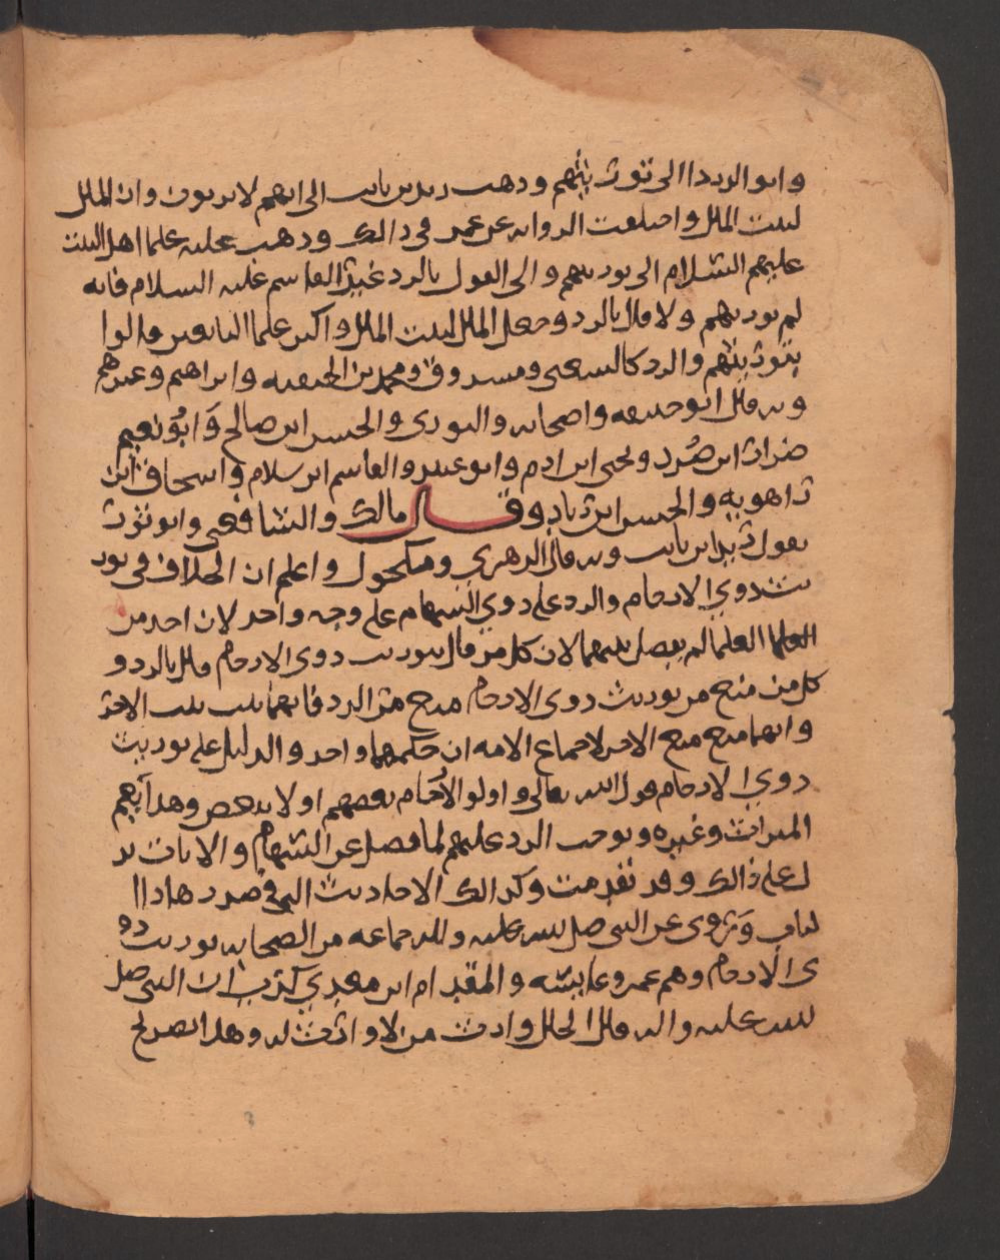 وابو الدردا الى توريثهم وذهب زيد بن ثابت الى انهم لا يرثون وان المال
لبيت المال واختلفت الرواية عن عمر في ذالك وذهب عليه علما اهل البيت
عليهم السلام الى توريثهم والى القول بالرد غير القاسم عليه السلام فانه
لم يورثهم ولا قال بالرد وجعل المال لبيت المال واكثر علما التابعين قالوا
بتوريثهم والرد كالشعبي ومسروق ومحمد بن الحنفيه وابراهيم وغيرهم
وبه قال ابو حنيفه واصحابه والثوري والحسن ابن صالح وابو نعيم
ضرار ابن صرد ويحيى ابن ادم وابو عبيد والقاسم ابن سلام واسحاق ابن
راهويه والحسن ابن زياد وقال مالك والشافعي وابو ثور
بقول زيد ابن ثابت وبه قال الزهري ومكحول واعلم ان الخلاف في تور
يث ذوي الارحام والرد على ذوي السهام على وجه واحد لان احد من
العلما العلما لم يفصل بينهما لان كل من قال بتوريث ذوي الارحام قال بالرد و
كل من منع من توريث ذوي الارحام منع من الرد فايهما ثبت ثبت الاخر
وايهما منع منع الاخر لاجماع الامه ان حكمهما واحد والدليل على توريث
ذوي الارحام قول الله تعالى واولوا الارحام بعضهم اولا ببعض وهذا يعم
الميراث وغيره ويوجب الرد عليهم لما فضل عن السهام والايات تد
ل على ذالك وقد تقدمت وكذالك الاحاديث التي في صدر هاذا ا
لباب وتروى عن النبي صلى الله عليه واله جماعه من الصحابه توريث ذو
ى الارحام وهم عمر وعايشه والمقدام ابن معدي كرب ان النبي صلى
الله عليه واله قال الخال وارث من لا وارث له وهذا تصريح